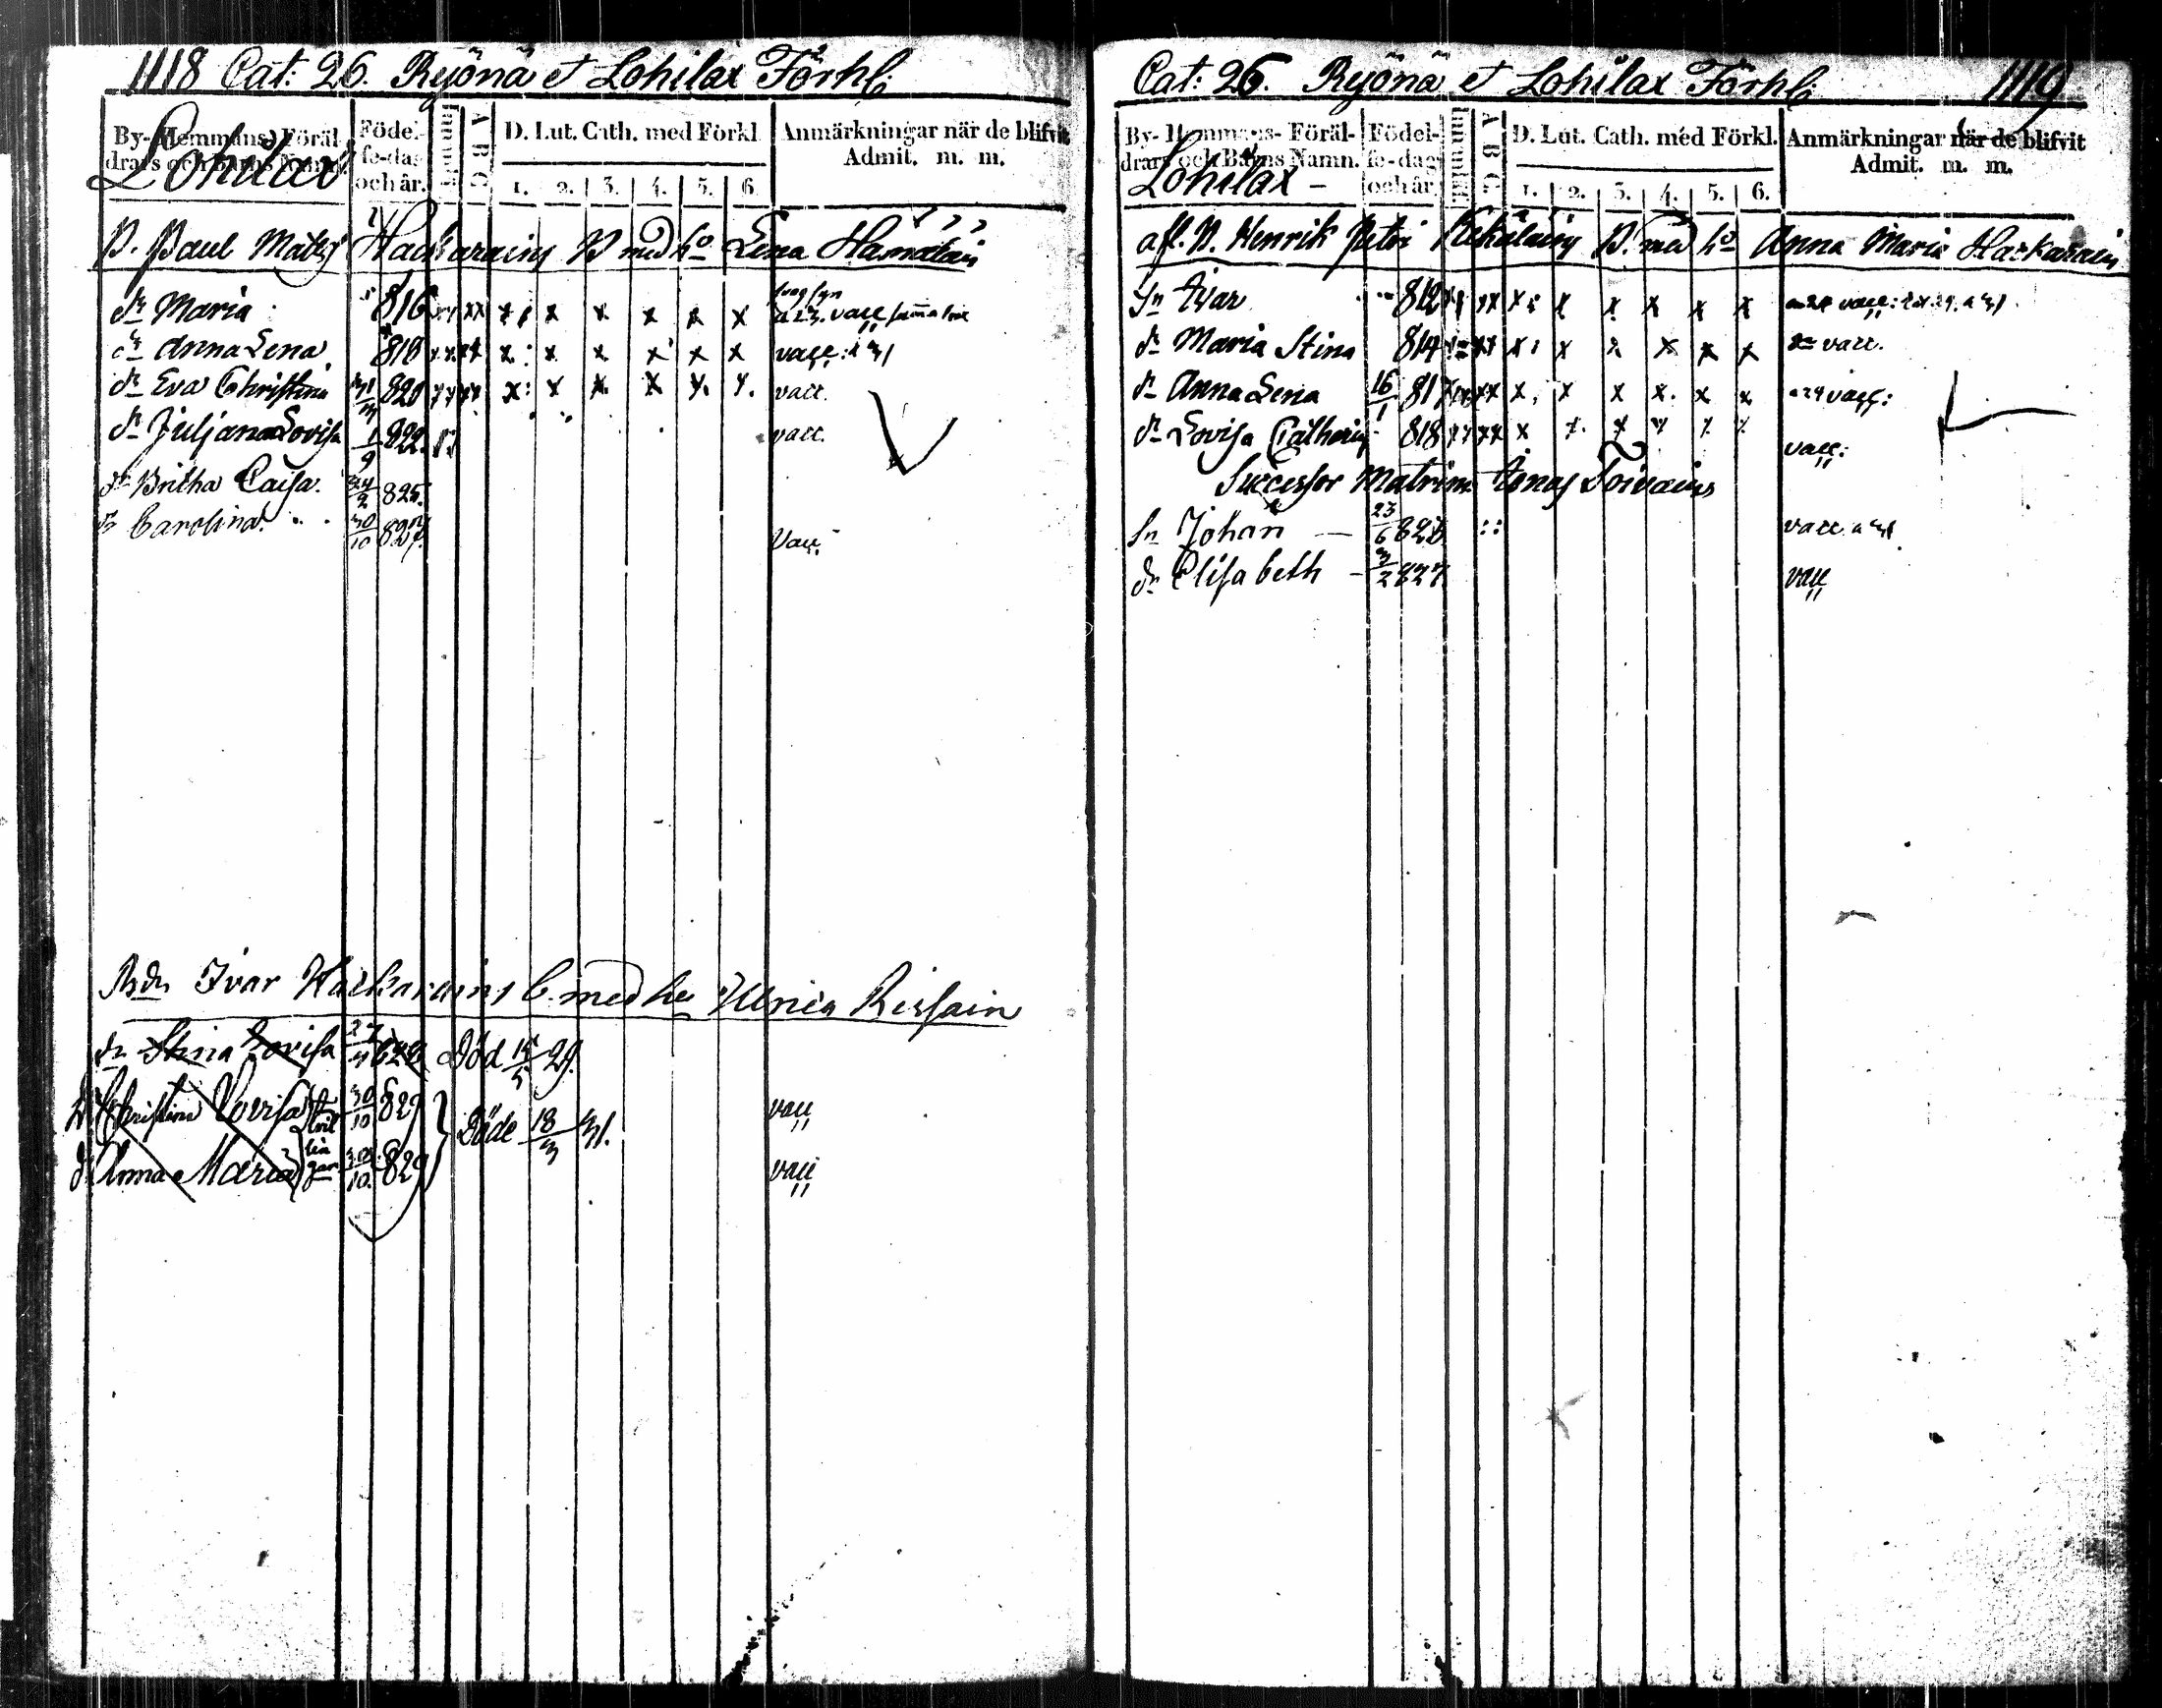 1118 Cat: 26. Ryönä et Lohilax Förhl:
By- Hemmans- Föräl-
drars och Barns Namn.
Lohilax
Födel-
se-dag
och år.
A B C
D. Lut. Cath. med Förkl.
1. 2. 3. 4. 5. 6.
Anmärkningar när de blifvit
Admit. m. m.
B. Paul Mats Hackarains B med ho Lena
dr Maria 816 x x x x x x vacc
dr Anna Lena 818 x: x x x x x vacc:
dr Eva Christina 820 x: x x x x. x. vacc.
dr Juljana Lovisa 1/9 822. vacc.
dr Britha Caisa. 24/2 825.
dr Carolina. 30/10 827. Vacc.
Ivar Hackarains B. med ho Ulrica Rissain
dr Stina Lovisa 27/4 828 Död 15/5 29.
dr Christina Lovisa 30/10 829 vacc
tvil
lin
gar
Döde 18/3 31.
dr Anna Maria 30/10. 829 vacc
Cat: 26. Ryönä et Lohilax Förhl: 1119
By- Hemmans- Föräl-
drars och Barns Namn.
Lohilax
Födel-
se-dag
och år.
A B C
D. Lut. Cath. med Förkl.
1. 2. 3. 4. 5. 6.
Anmärkningar när de blifvit
Admit. m. m.
afl. B. Henrik Petri B. med ho Anna Maria Hackarain
Sn Ivar 812 x: x x x x x vacc:
dr Maria Stina 814 x: x x x x x vacc.
dr Anna Lena 16/1 817 x. x x x. x x vacc:
dr Lovisa Catharina 818 x x. x x x x vacc:
Successor Matrim. Jonas Toivains
Sn Johan 23/6 828 :: vacc
dr Elisabeth 3/2 827 vacc